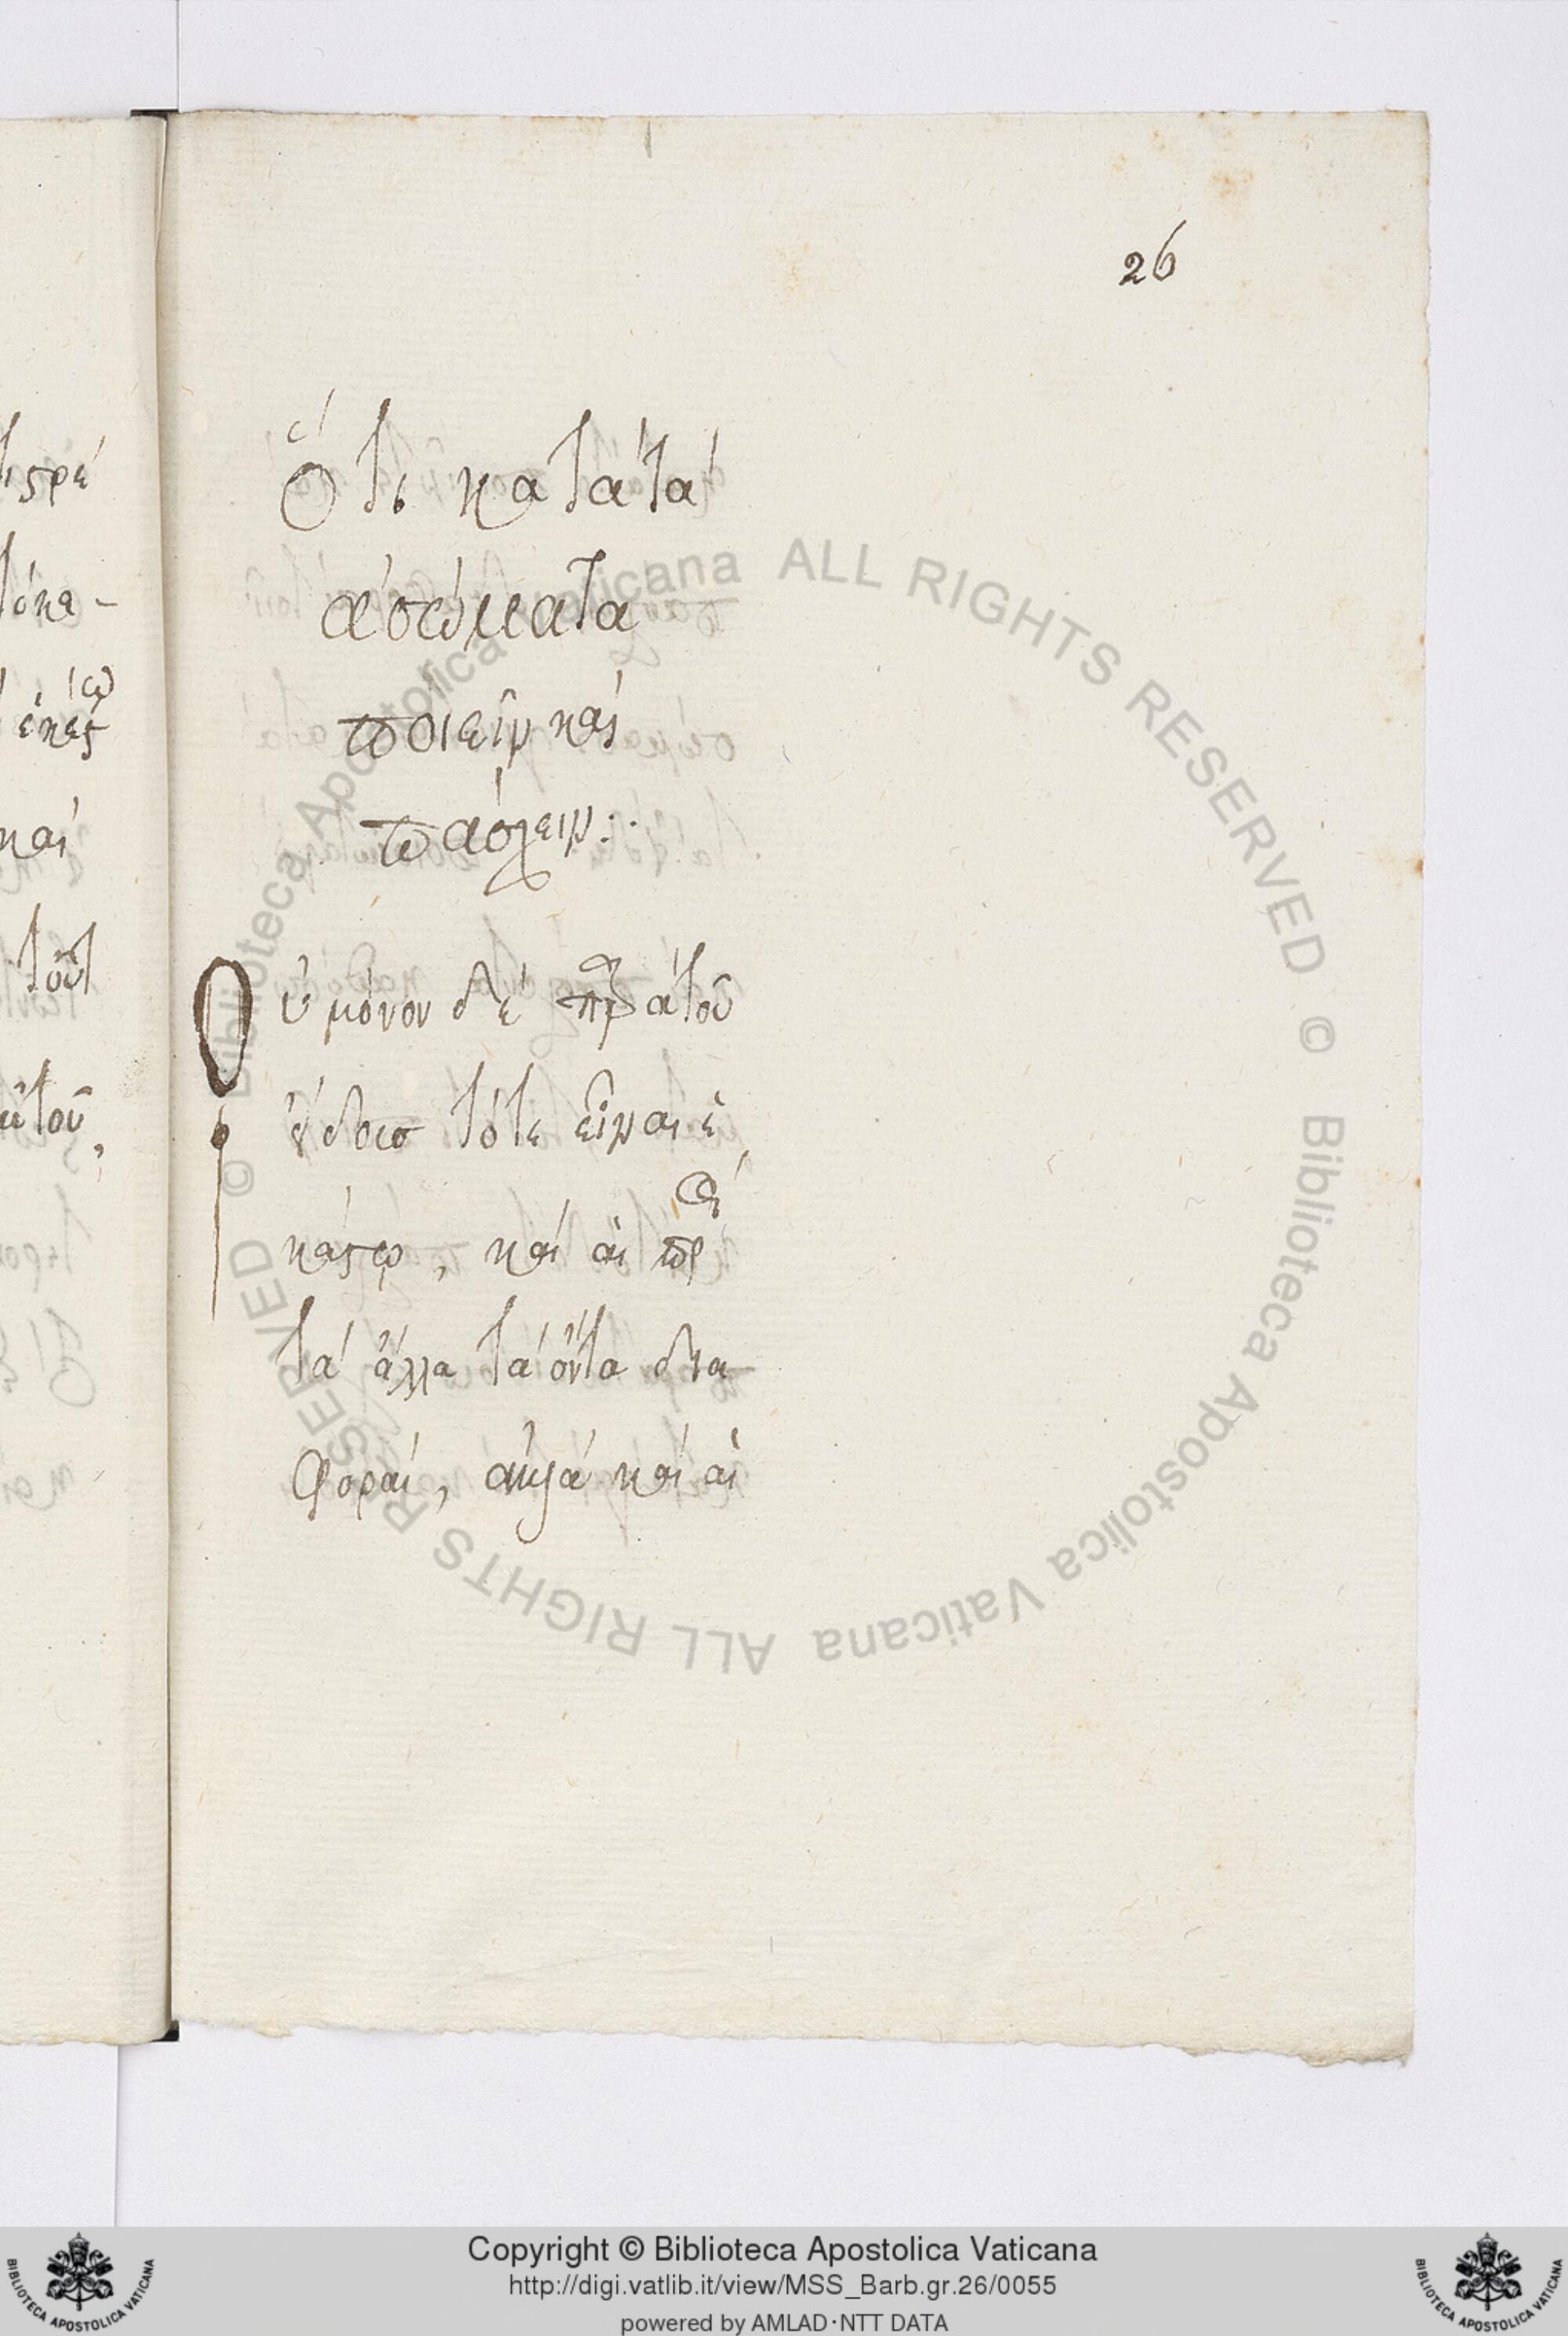 26
Ὅτι κατὰ τὰ
ἀσώματα
ποιεῖν καὶ
πάσχειν:.
Οὐ μόνον δὲ τοῦ
τότε εἶναι ἑ
κάστῳ, καὶ αἱ πρ
τὰ ἄλλα τὰ ὄντα δια
φοραί, ἀλλὰ καὶ αἱ
Biblioteca Apostolica Vaticana ALL RIGHTS RESERVED ©
Biblioteca Apostolica Vaticana ALL RIGHTS RESERVED ©
Copyright © Biblioteca Apostolica Vaticana
http://digi.vatlib.it/view/MSS_Barb.gr.26/0055
powered by AMLAD·NTT DATA
BIBLIOTECA APOSTOLICA VATICANA
BIBLIOTECA APOSTOLICA VATICANA